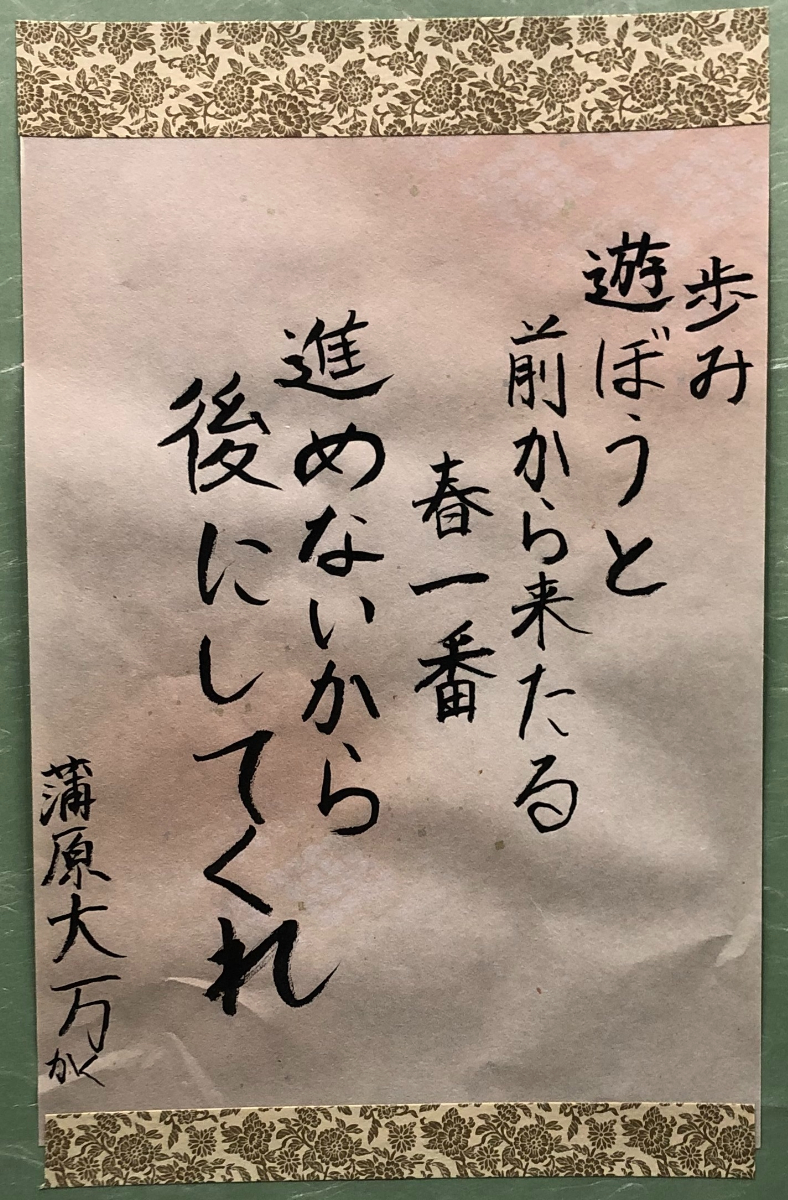 歩み
遊ぼうと
前から来たる
春一番
進めないから
後にしてくれ
蒲原大万かく